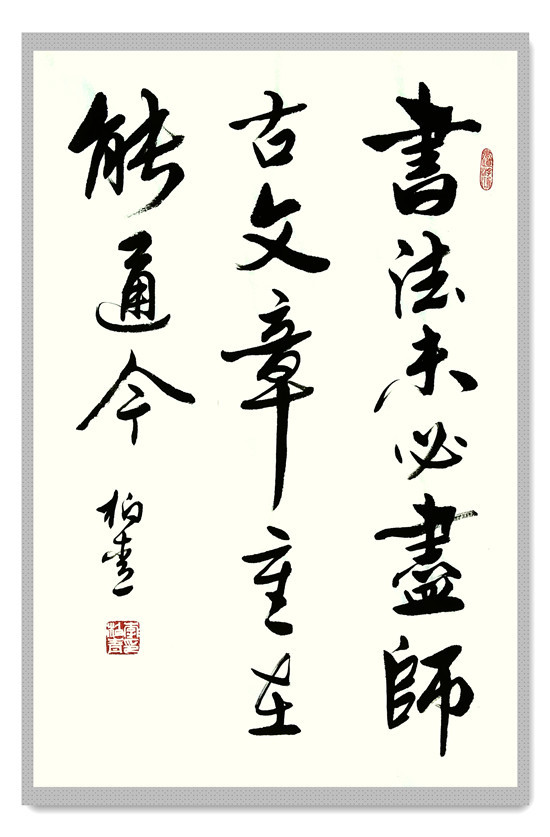 書法未必盡師
古文章重在
能通今
柏